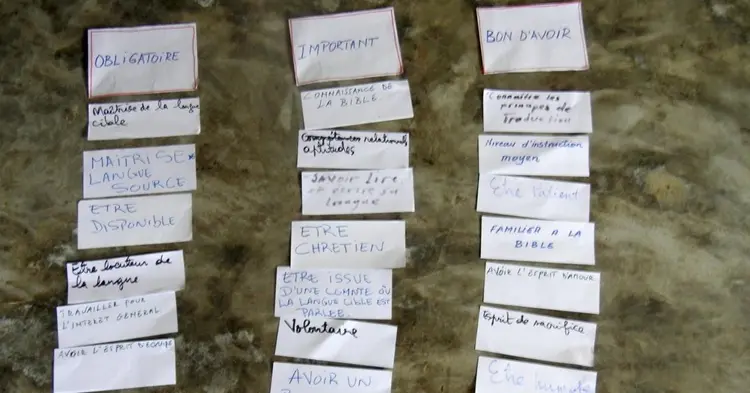 OBLIGATOIRE
Maîtrise de la langue
cible
MAITRISE
LANGUE
SOURCE
ETRE
DISPONIBLE
Etre locuteur de
la langue
TRAVAILLER POUR
L'INTERET GENERAL
AVOIR L'ESPRIT D'EQUIPE
IMPORTANT
CONNAISSANCE DE
LA BIBLE
Compétences relationnels
aptitudes
SAVOIR LIRE
et écrire sa
langue
ETRE
CHRETIEN
ETRE ISSUE
D'UNE COMNTE OÙ
LA LANGUE CIBLE EST
PARLEE.
Volontaire
AVOIR UN
BON D'AVOIR
Connaitre les
principes de
Traduction
Niveau d'instruction
moyen
Etre Patient
FAMILIER A LA
BIBLE
AVOIR L'ESPRIT
Esprit de sacrifice
Etre humble